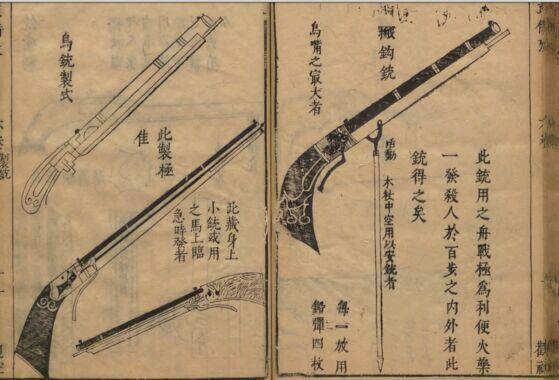 鈎銃
鳥嘴之㝡大者
此銃用之舟戰極為利便火藥
一發殺人於百步之內外者此
銃得之矣
活動
木杖中空用以安銃者
每一放用
鉛彈四枚
鳥銃製式
此製極
佳
此藏身上
小銃或用
之馬上臨
急時發者
製銃